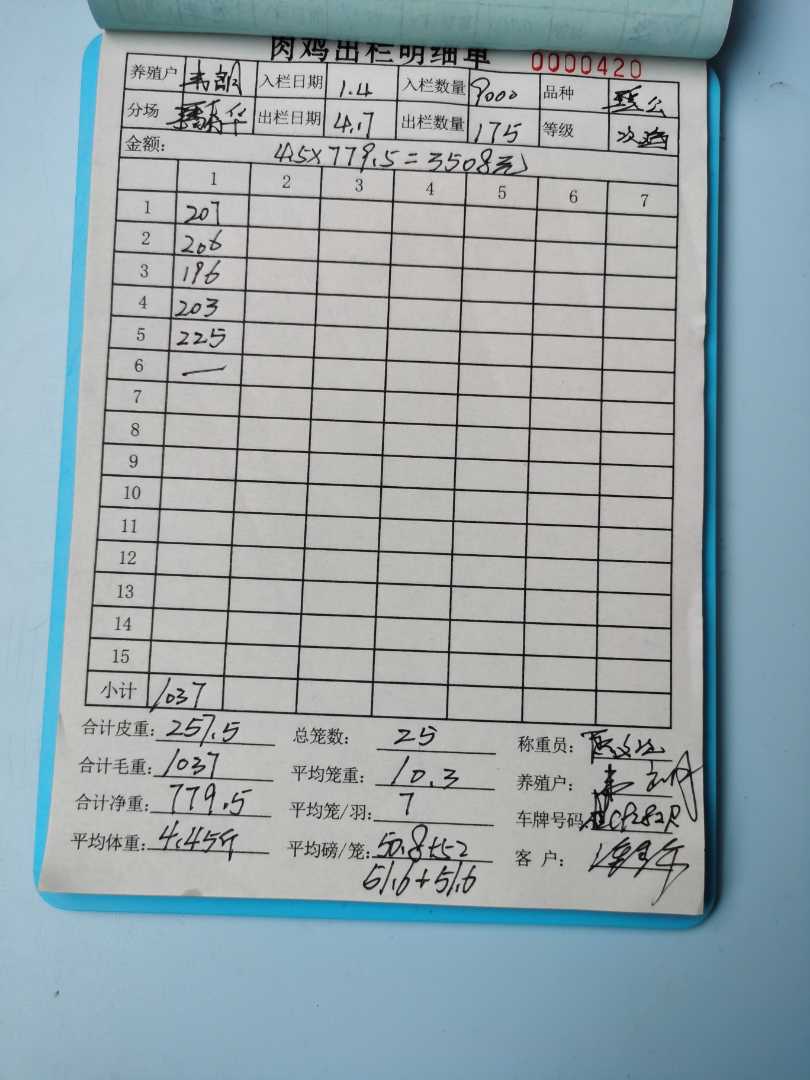 肉鸡出栏明细单 0000420
养殖户 韦 入栏日期 1.4 入栏数量 9000 品种
分场 华 出栏日期 4.17 出栏数量 175 等级 次鸡
金额: 4.5×779.5=3508元
1 2 3 4 5 6 7
1 207
2 206
3 196
4 203
5 225
6 —
7
8
9
10
11
12
13
14
15
小计 1037
合计皮重: 257.5 总笼数: 25 称重员:
合计毛重: 1037 平均笼重: 10.3 养殖户: 韦
合计净重: 779.5 平均笼/羽: 7 车牌号码
平均体重: 4.45斤 平均磅/笼: 50.8+52 客户:
51.6+51.6